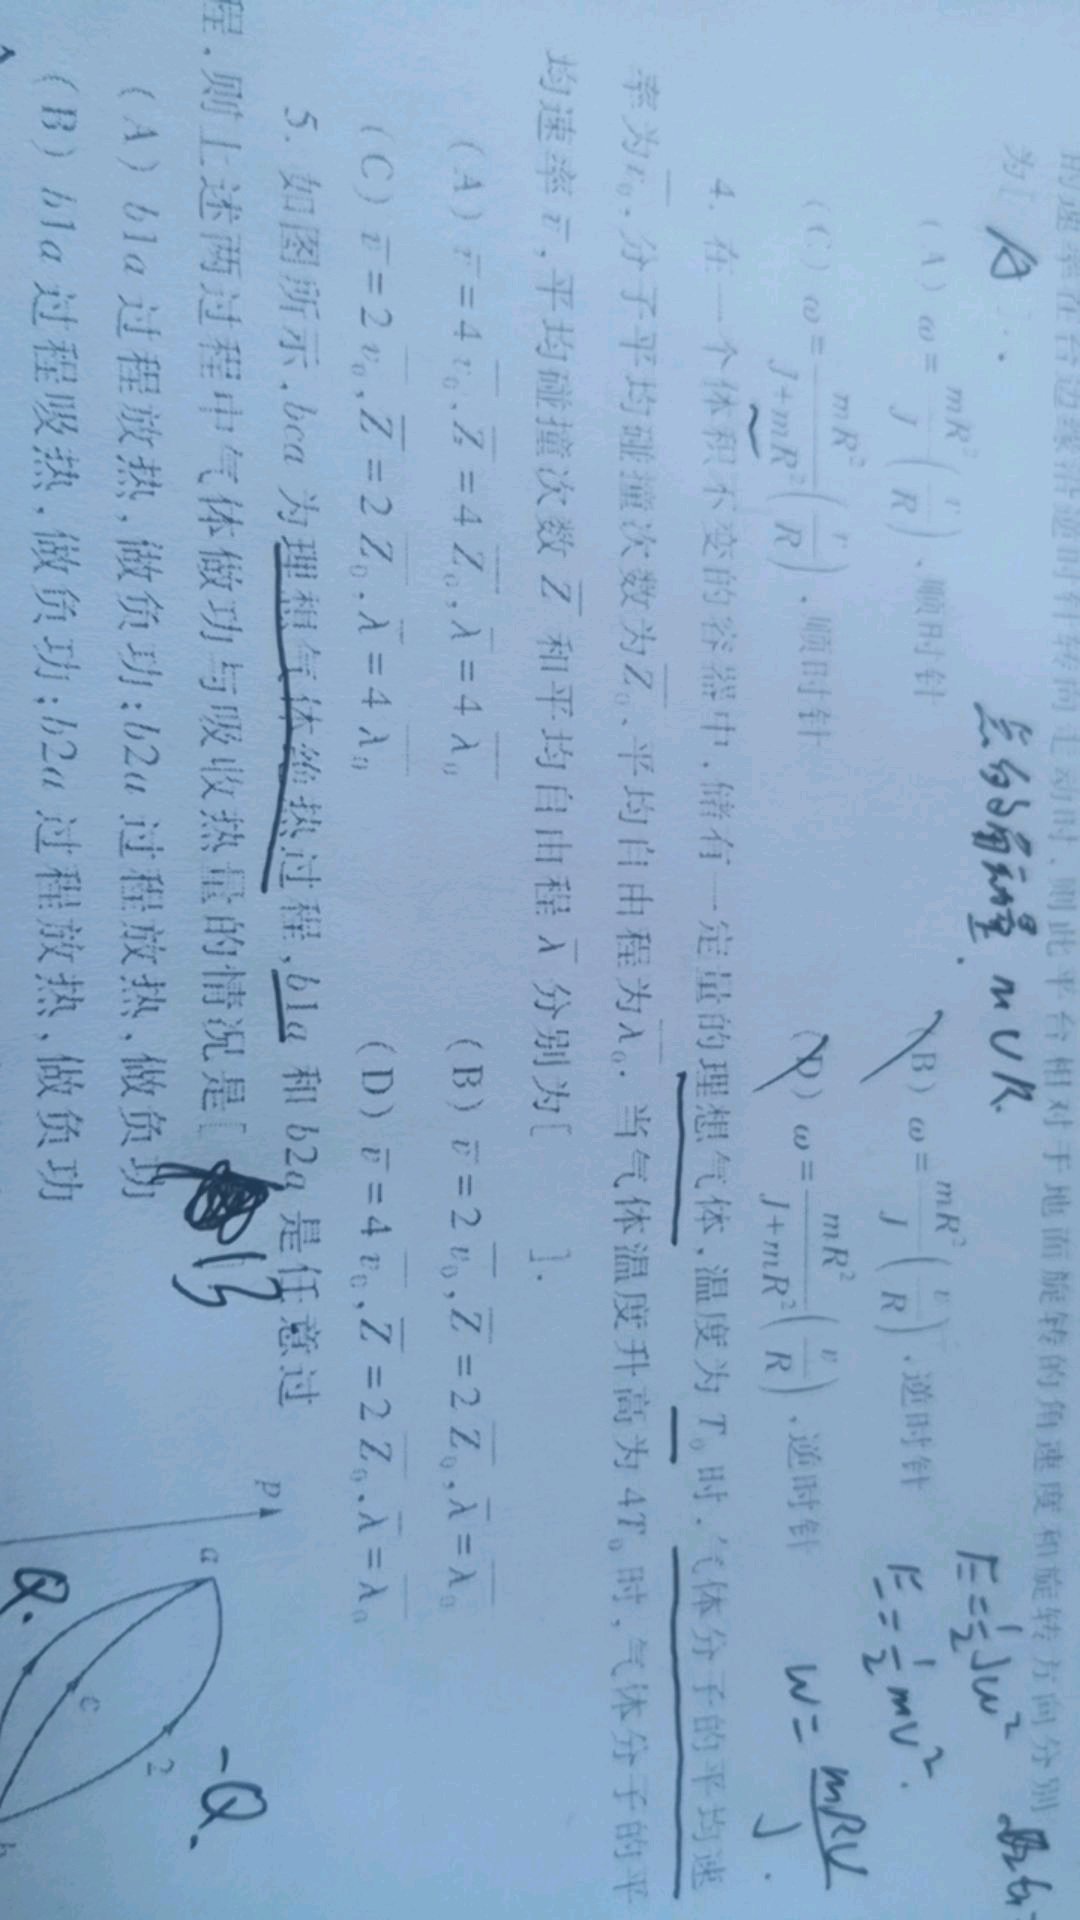 的速率在台边缘沿逆时针转向走动时、则此平台相对于地面旋转的角速度和旋转方向分别
为[ A ].
(A) ω=mR²/J(v/R),顺时针
(B) ω=mR²/J(v/R),逆时针
(C) ω=mR²/J+mR²(v/R),顺时针
(D) ω=mR²/J+mR²(v/R),逆时针
角动量 mVR
E=½Jω²
E=½mv².
W=mRV/J.
4. 在一个体积不变的容器中,储有一定量的理想气体,温度为T₀时,气体分子的平均速
率为v̄₀,分子平均碰撞次数为Z̄₀、平均自由程为λ̄₀. 当气体温度升高为4T₀时,气体分子的平
均速率v̄,平均碰撞次数Z̄和平均自由程λ̄分别为[ ].
(A) v̄=4v̄₀,Z̄=4Z̄₀,λ̄=4λ̄₀
(B) v̄=2v̄₀,Z̄=2Z̄₀,λ̄=λ̄₀
(C) v̄=2v̄₀,Z̄=2Z̄₀,λ̄=4λ̄₀
(D) v̄=4v̄₀,Z̄=2Z̄₀,λ̄=λ̄₀
5. 如图所示,bca为理想气体绝热过程,b1a和b2a是任意过
程,则上述两过程中气体做功与吸收热量的情况是[ B
(A) b1a过程放热,做负功;b2a过程放热,做负功
(B) b1a过程吸热,做负功;b2a过程放热,做负功
p
a
c
2
b
-Q.
Q.